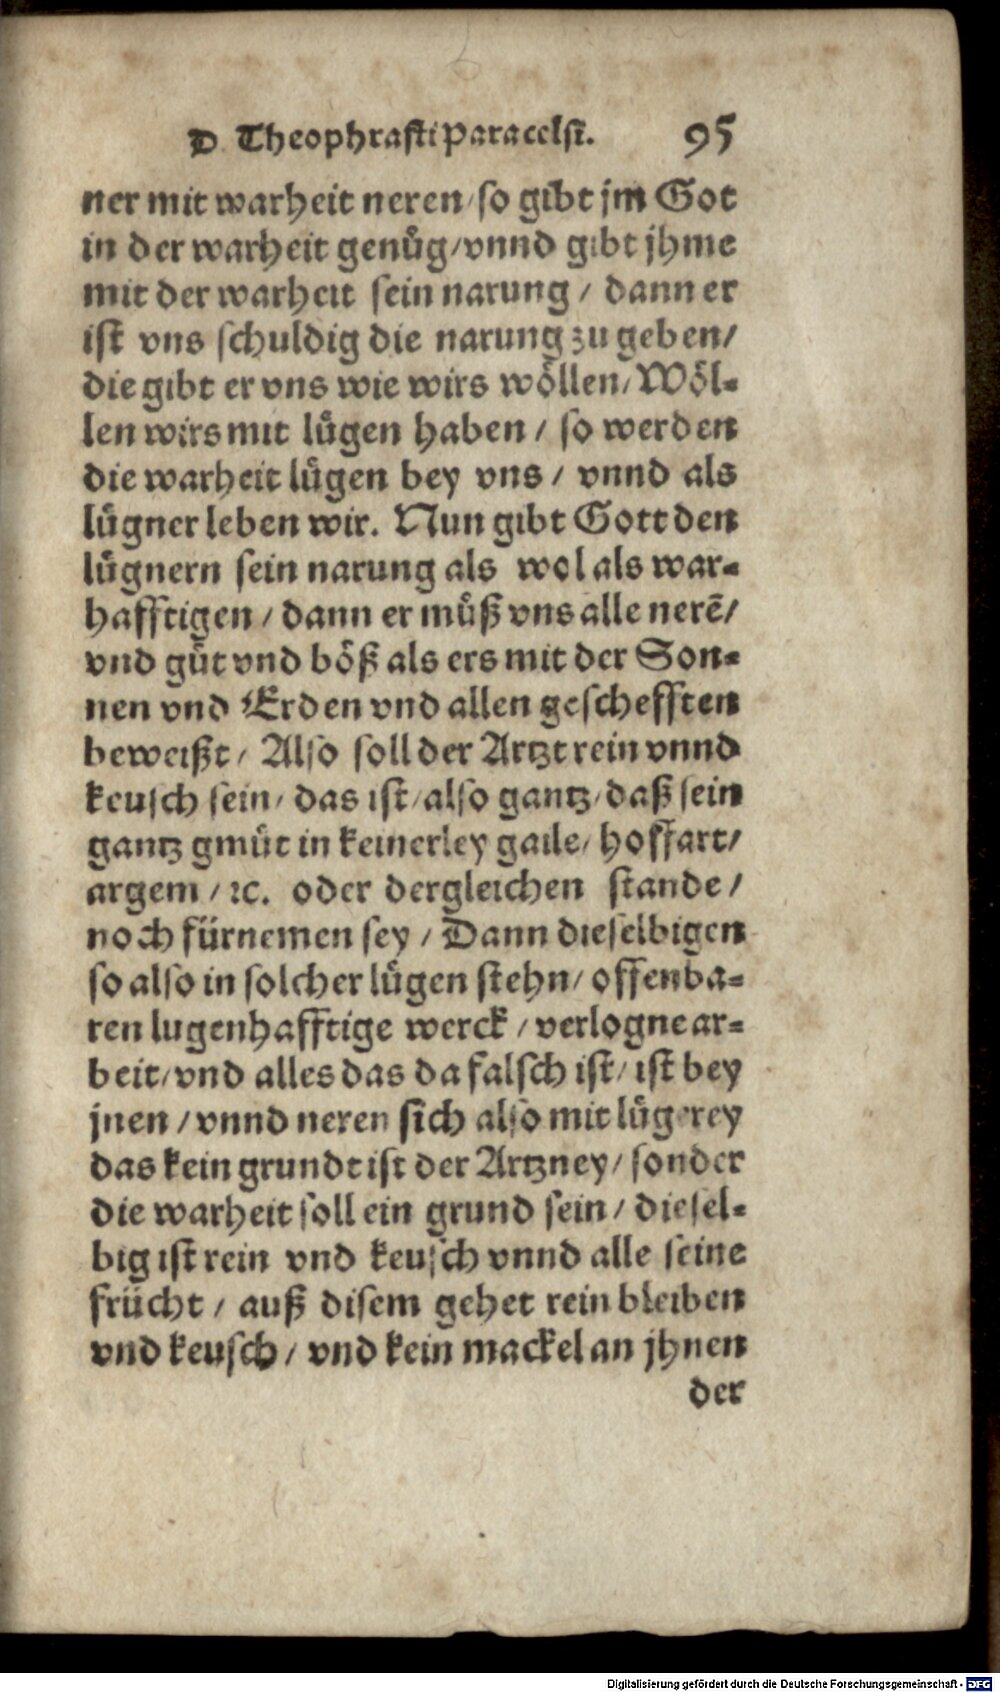 D. Theophrasti Paracelsi. 95
ner mit warheit neren / so gibt jm Got
in der warheit genuͦg / vnnd gibt jhme
mit der warheit sein narung / dann er
ist vns schuldig die narung zu geben /
die gibt er vns wie wirs woͤllen / Woͤl-
len wirs mit luͤgen haben / so werden
die warheit luͤgen bey vns / vnnd als
luͤgner leben wir. Nun gibt Gott den
luͤgnern sein narung als wol als war-
hafftigen / dann er muͤß vns alle nerē /
vnd guͦt vnd boͤß als ers mit der Son-
nen vnd Erden vnd allen geschefften
beweißt / Also soll der Artzt rein vnnd
keusch sein / das ist / also gantz / daß sein
gantz gmuͤt in keinerley gaile / hoffart /
argem / ꝛc. oder dergleichen stande /
noch fürnemen sey / Dann dieselbigen
so also in solcher luͤgen stehn / offenba-
ren lugenhafftige werck / verlogne ar-
beit / vnd alles das da falsch ist / ist bey
jnen / vnnd neren sich also mit luͤgerey
das kein grundt ist der Artzney / sonder
die warheit soll ein grund sein / diesel-
big ist rein vnd keusch vnnd alle seine
frücht / auß disem gehet rein bleiben
vnd keusch / vnd kein mackel an jhnen
der
Digitalisierung gefördert durch die Deutsche Forschungsgemeinschaft - DFG